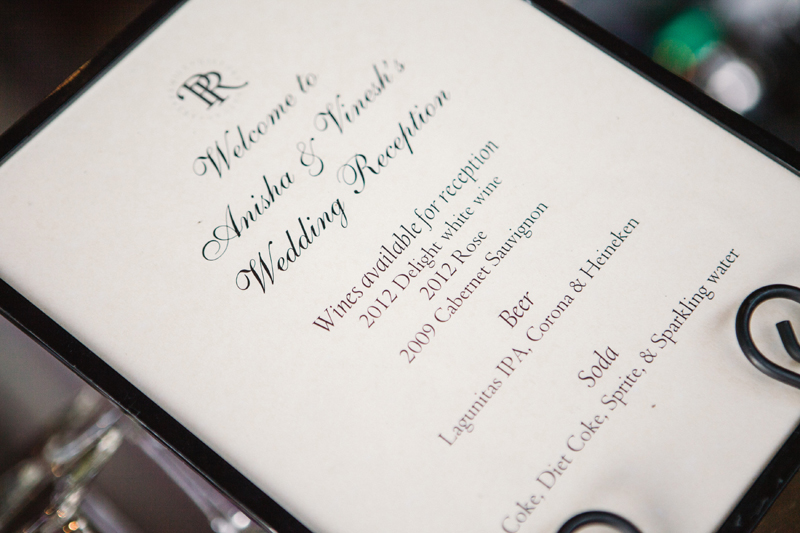 PR
Welcome to
Anisha & Vinesh's
Wedding Reception
Wines available for reception
2012 Delight white wine
2012 Rose
2009 Cabernet Sauvignon
Beer
Lagunitas IPA, Corona & Heineken
Soda
Coke, Diet Coke, Sprite, & Sparkling water